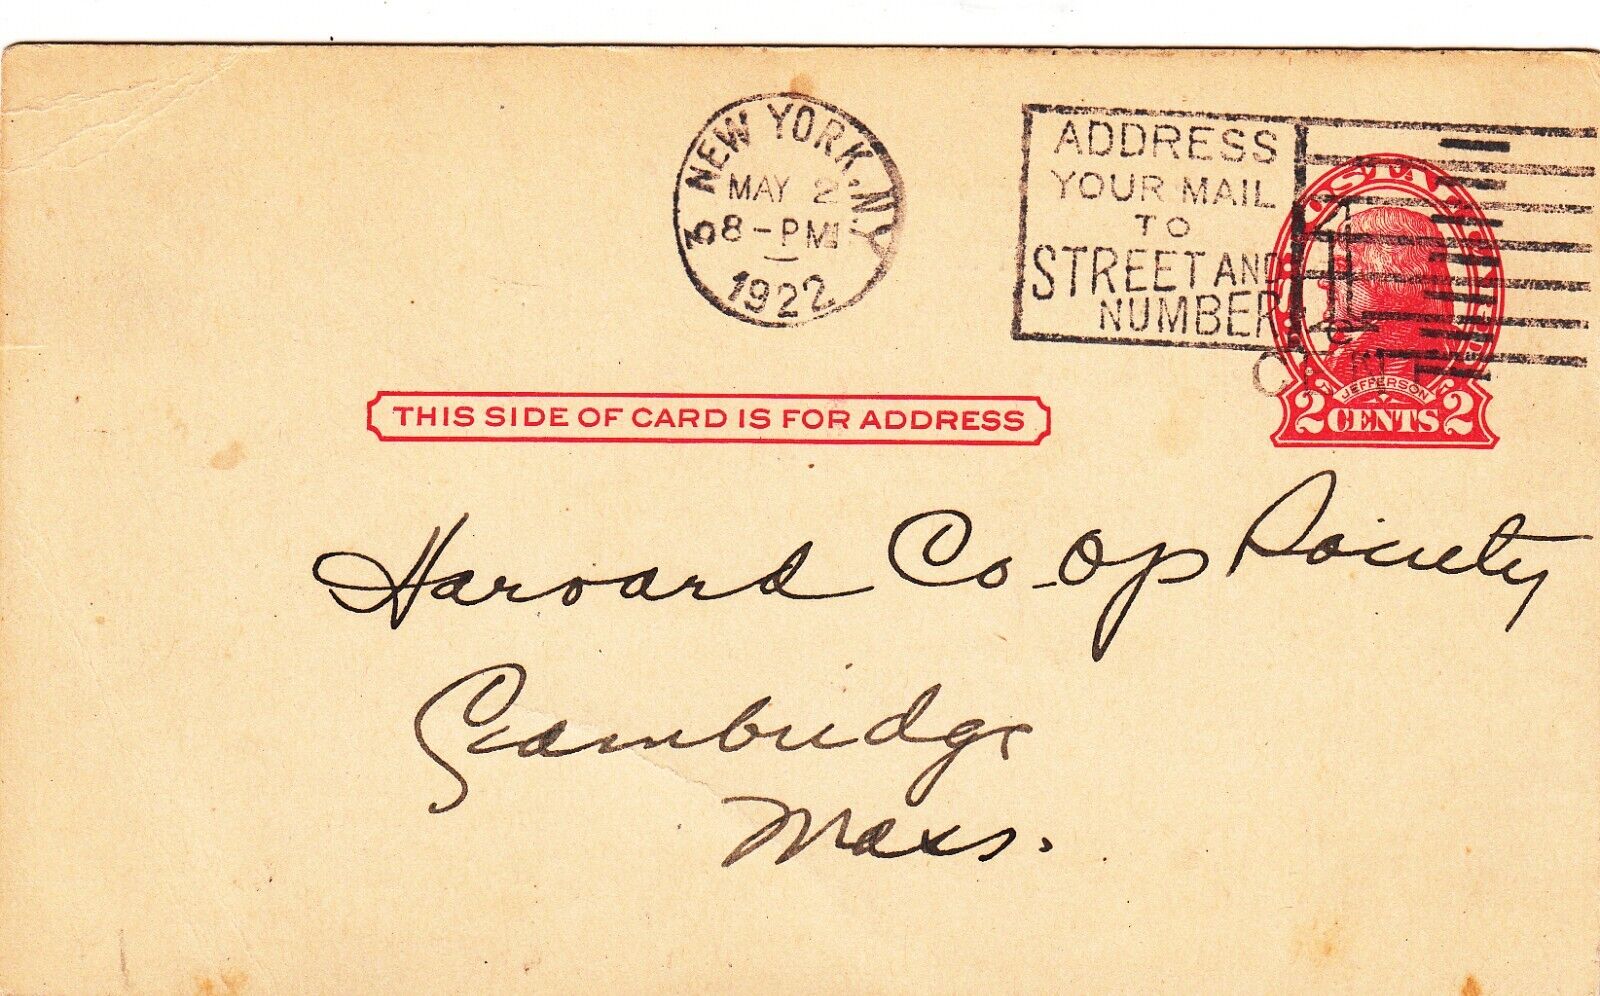 NEW YORK, N.Y.
3
MAY 2
8-PM
1922
ADDRESS
YOUR MAIL
TO
STREET AND
NUMBER
1
JEFFERSON
2 CENTS 2
THIS SIDE OF CARD IS FOR ADDRESS
Harvard Co-op Society
Cambridge
Mass.